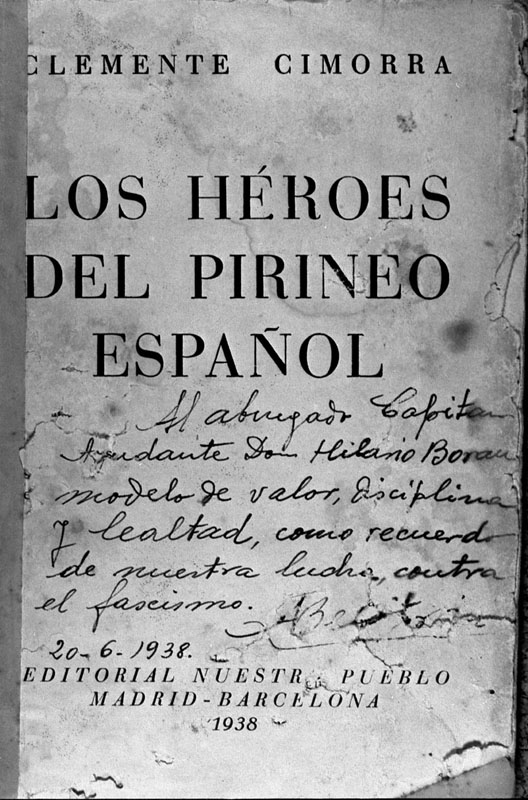 CLEMENTE CIMORRA
LOS HÉROES
DEL PIRINEO
ESPAÑOL
Al abnegado Capitan
Ayudante Don Hilario Borau
modelo de valor, disciplina
y lealtad, como recuerdo
de nuestra lucha, contra
el fascismo. Beltrán
20-6-1938.
EDITORIAL NUESTR PUEBLO
MADRID-BARCELONA
1938